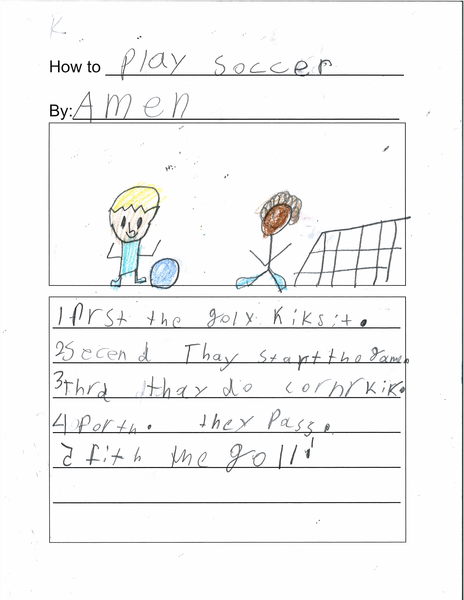 K
How to play soccer
By: Amen
1 first the golx Kiksit.
2 Secend Thay startthe game.
3 thrd thay do cornrkik.
4 Forth. they Pass.
5 fith the goll!